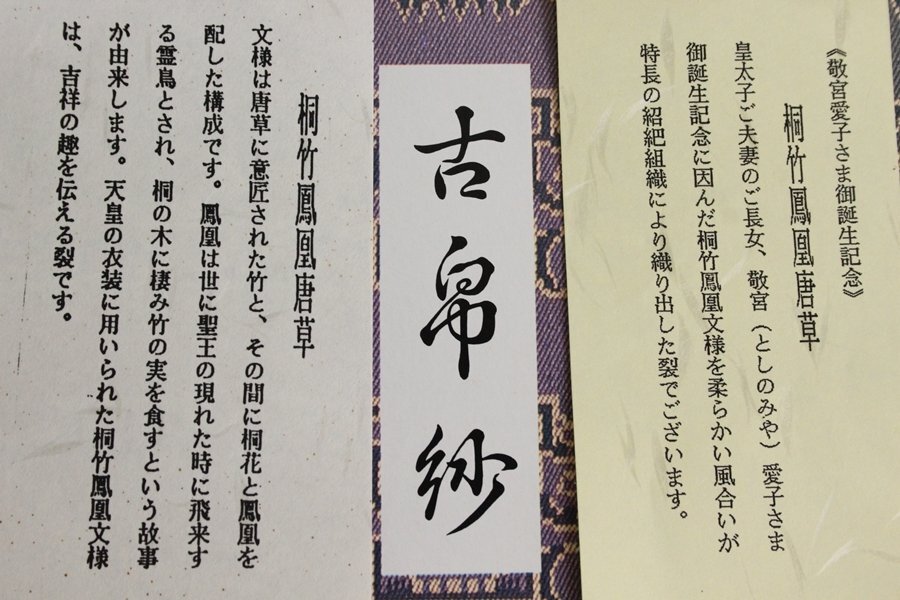 《敬宮愛子さま御誕生記念》
桐竹鳳凰唐草
皇太子ご夫妻のご長女、敬宮（としのみや）愛子さま
御誕生記念に因んだ桐竹鳳凰文様を柔らかい風合いが
特長の紹紦組織により織り出した裂でございます。
古帛紗
桐竹鳳凰唐草
文様は唐草に意匠された竹と、その間に桐花と鳳凰を
配した構成です。鳳凰は世に聖王の現れた時に飛来す
る霊鳥とされ、桐の木に棲み竹の実を食すという故事
が由来します。天皇の衣装に用いられた桐竹鳳凰文様
は、吉祥の趣を伝える裂です。